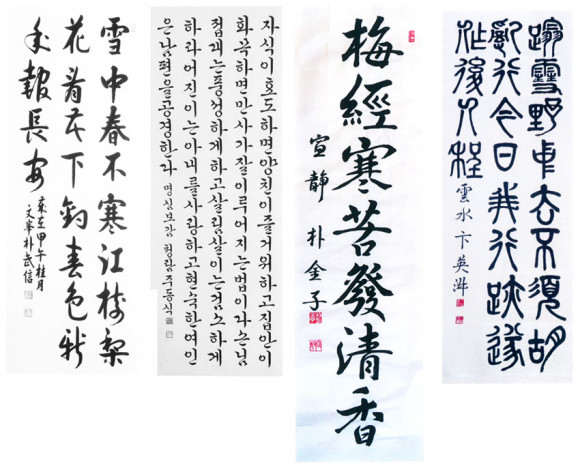 雪中春不寒江樹梨
花着下釣春色新
報長安
甲午桂月
文峯朴武信
자식이효도하면양친이즐거워하고집안이
화목하면만사가잘이루어지는법이라손님
접대는풍성하게하고살림살이는검소하게
하라어진이는아내를사랑하고현숙한여인
은남편을공경한다 명심보감 형람주동식
梅經寒苦發清香
宣靜 朴金子
蹋雪野中去不須胡
亂行今日我行跡遂
作後人程
雲水 卞英